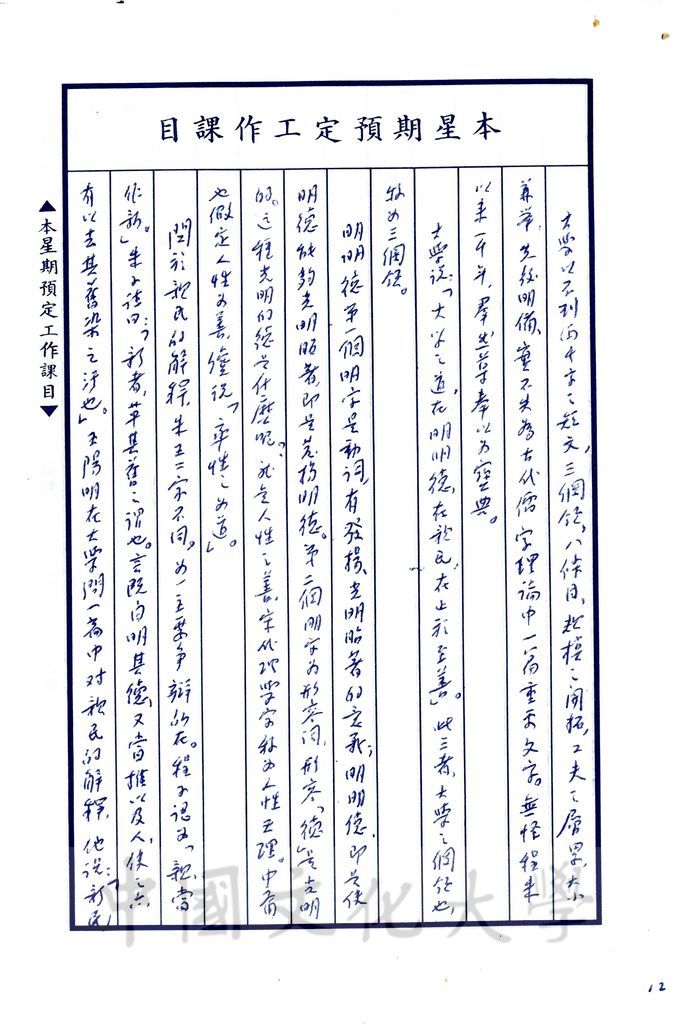 本星期預定工作課目
大學以不到兩千字之短文，三個綱領，八條目，規模之開拓，工夫之層累，大小
兼舉，先後明備，實不失為古代儒家理論中一篇重要文字。無怪程朱
以來一千年，群出尊奉以為寶典。
大學說：「大學之道，在明明德，在親民，在止於至善」。此三者，大學之綱領也，
稱為三綱領。
明明德第一個明字是動詞，有發揚、光明昭著的意義；明明德，即是使
明德能夠光明昭著，即是荒揚明德。第二個明字為形容詞，形容「德」是光明
的。這種光明的德是什麼呢？就是人性之善，宋代理學家稱為人性天理。中庸
也假定人性為善，纔說「率性之為道」。
關於親民的解釋，朱王二家不同，為一主要爭辯所在。程子認為「親，當
作新」。朱子註曰：「新者，革其舊之謂也。言既自明其德，又當推以及人，使之亦
有以去其舊染之汙也」。王陽明在大學問一篇中對親民的解釋，他說：「新民，
▲本星期預定工作課目▼
中國文化大學
12